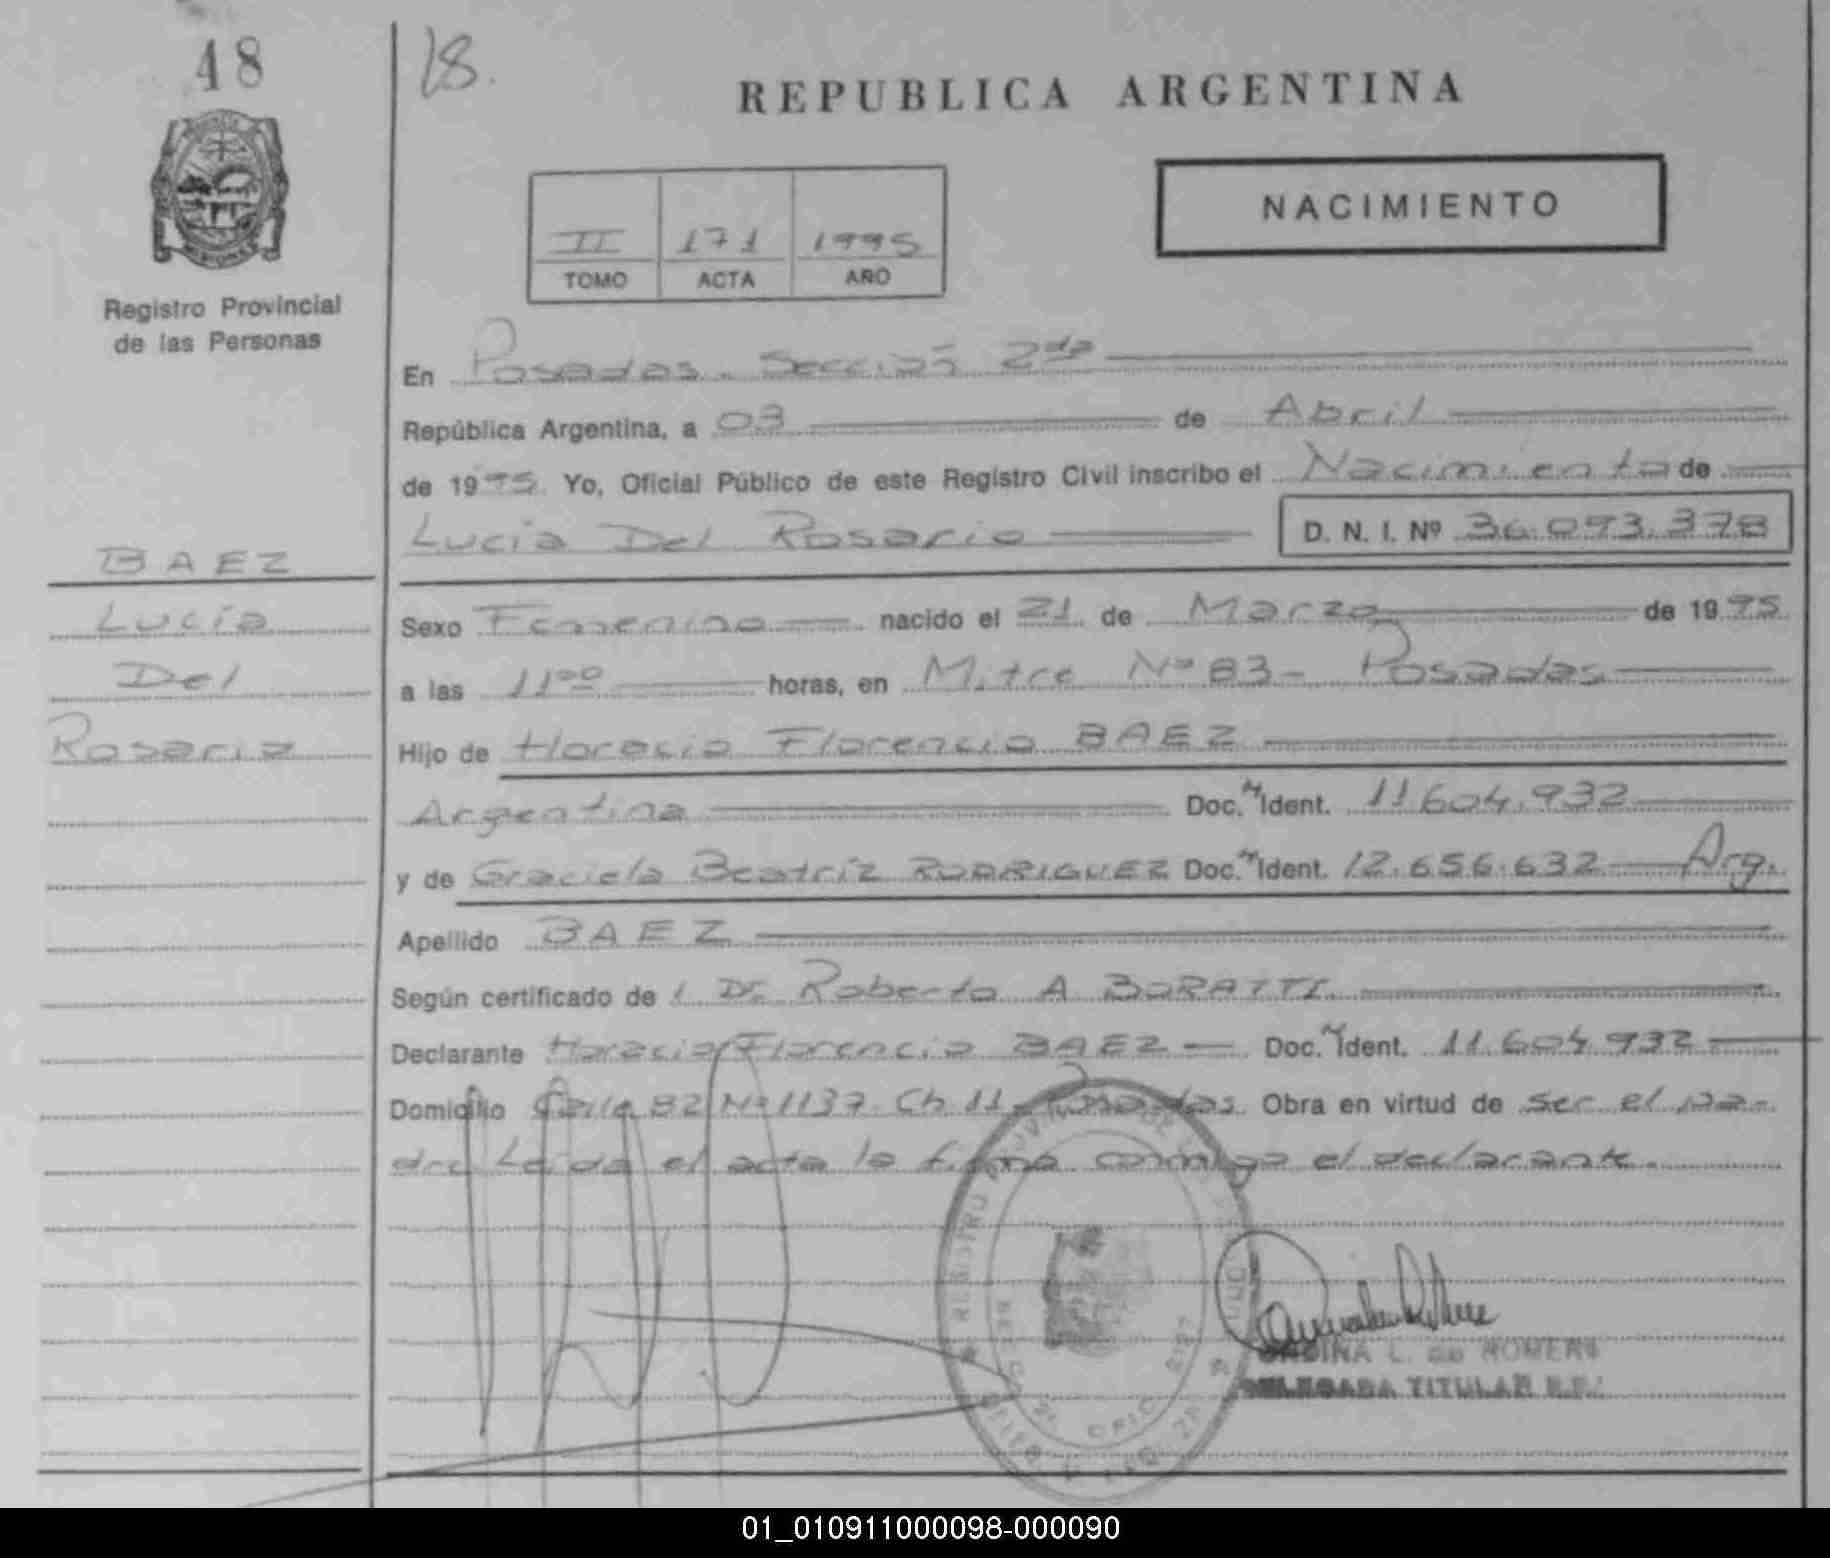 48
18.
REPUBLICA ARGENTINA
NACIMIENTO
II 171 1995
TOMO ACTA AÑO
Registro Provincial
de las Personas
En Posadas. Sección 2da
República Argentina, a 03 de Abril
de 1995. Yo, Oficial Público de este Registro Civil inscribo el Nacimiento de
Lucia Del Rosario D. N. I. Nº 36.093.378
BAEZ
Lucía
Del
Rosario
Sexo Femenino nacido el 21 de Marzo de 1995
a las 11⁰⁰ horas, en Mitre Nº 83 - Posadas
Hijo de Horacio Florencio BAEZ
Argentina Doc. Ident. 11.604.932
y de Graciela Beatríz RODRIGUEZ Doc. Ident. 12.656.632 Arg.
Apellido BAEZ
Según certificado de l Dr. Roberto A BORATTI
Declarante Horacio Florencio BAEZ Doc. Ident. 11.604.932
Domicilio Calle 92 Nº 1137 Ch 11 Posadas. Obra en virtud de ser el pa-
dre Leida el acta la firma conmigo el declarante.
L. de ROMERO
DELEGADA TITULAR R.P.
01_010911000098-000090